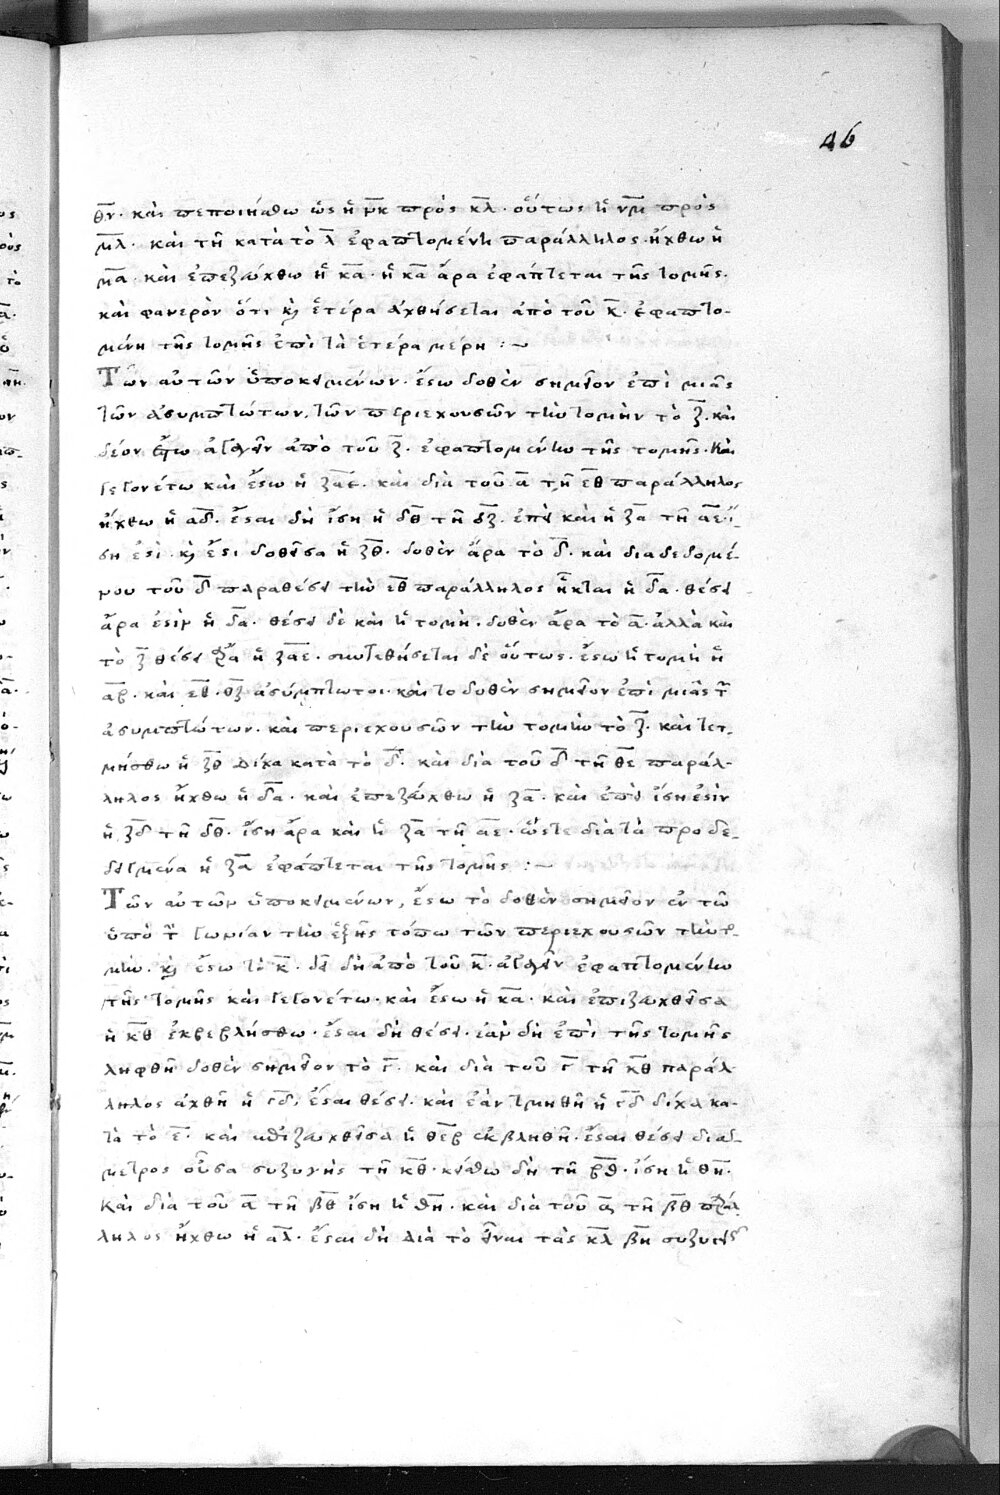 46
θν· καὶ πεποιήσθω ὡς ἡ μκ πρὸς κλ· οὕτως ἡ νμ πρὸς
μλ· καὶ τῇ κατὰ τὸ λ ἐφαπτομένη παράλληλος ἤχθω ἡ
μα· καὶ ἐπεζεύχθω ἡ κα· ἡ κα ἄρα ἐφάπτεται τῆς τομῆς·
καὶ φανερὸν ὅτι καὶ ἑτέρα ἀχθήσεται ἀπὸ τοῦ κ· ἐφαπτο-
μένη τῆς τομῆς ἐπὶ τὰ ἑτέρα μέρη :~
Τῶν αὐτῶν ὑποκειμένων· ἔστω δοθὲν σημεῖον ἐπὶ μιᾶς
τῶν ἀσυμπτώτων, τῶν περιεχουσῶν τὴν τομὴν τὸ ζ· καὶ
δέον ἔστω ἀγαγεῖν ἀπὸ τοῦ ζ· ἐφαπτομένην τῆς τομῆς· καὶ
γεγονέτω καὶ ἔστω ἡ ζαε· καὶ διὰ τοῦ α τῇ εθ παράλληλος
ἤχθω ἡ αδ· ἔσται δὴ ἴση ἡ δθ τῇ δζ· ἐπεὶ καὶ ἡ ζα τῇ αε· ἴ-
ση ἐστί· καὶ ἔστι δοθεῖσα ἡ ζθ· δοθὲν ἄρα τὸ δ· καὶ διαδεδομέ-
μου τοῦ δ παραθέσει τὴν εθ παράλληλος ἦκται ἡ δα· θέσει
ἄρα ἐστὶν ἡ δα· θέσει δὲ καὶ ἡ τομὴ· δοθὲν ἄρα τὸ α· ἀλλὰ καὶ
τὸ ζ θέσει ἄρα ἡ ζαε· συντεθήσεται δὲ οὕτως· ἔστω ἡ τομὴ ἡ
αβ· καὶ εθ· θζ ἀσύμπτωτοι· καὶ τὸ δοθὲν σημεῖον ἐπὶ μιᾶς τῶν
ἀσυμπτώτων· καὶ περιεχουσῶν τὴν τομὴν τὸ ζ· καὶ τετ-
μήσθω ἡ ζθ δίχα κατὰ τὸ δ· καὶ διὰ τοῦ δ τῇ θε παράλ-
ληλος ἤχθω ἡ δα· καὶ ἐπεζεύχθω ἡ ζα· καὶ ἐπεὶ ἴση ἐστὶν
ἡ ζδ τῇ δθ· ἴση ἄρα καὶ ἡ ζα τῇ αε· ὥστε διὰ τὰ προδε-
δειγμένα ἡ ζα ἐφάπτεται τῆς τομῆς :~
Τῶν αὐτῶν ὑποκειμένων, ἔστω τὸ δοθὲν σημεῖον ἐν τῶ
ὑπὸ τὴν γωνίαν τὴν ἑξῆς τόπω τῶν περιεχουσῶν τὴν το-
μήν· καὶ ἔστω τὸ κ· δεῖ δὴ ἀπὸ τοῦ κ· ἀγαγεῖν ἐφαπτομένην
τῆς τομῆς καὶ γεγονέτω· καὶ ἔστω ἡ κα· καὶ ἐπιζευχθεῖσα
ἡ κθ ἐκβεβλήσθω· ἔσται δὴ θέσει· ἐὰν δὴ ἐπὶ τῆς τομῆς
ληφθῇ δοθὲν σημεῖον τὸ γ· καὶ διὰ τοῦ γ τῇ κθ παράλ-
ληλος ἀχθῇ ἡ γδ, ἔσται θέσει· καὶ ἐὰν τμηθῇ ἡ γδ δίχα κα-
τὰ τὸ ε· καὶ ἐπιζευχθεῖσα ἡ θεβ ἐκβληθῇ· ἔσται θέσει διάὰ-
μετρος οὖσα συζυγὴς τῇ κθ· κείσθω δὴ τῇ βθ· ἴση ἡ θη·
καὶ διὰ τοῦ α τῇ βθ ἴση ἡ θη· καὶ διὰ τοῦ α τῇ βθ παράλ-
ληλος ἤχθω ἡ αλ· ἔσται δὴ διὰ τὸ εἶναι τὰς κλ βη συζυγεῖς